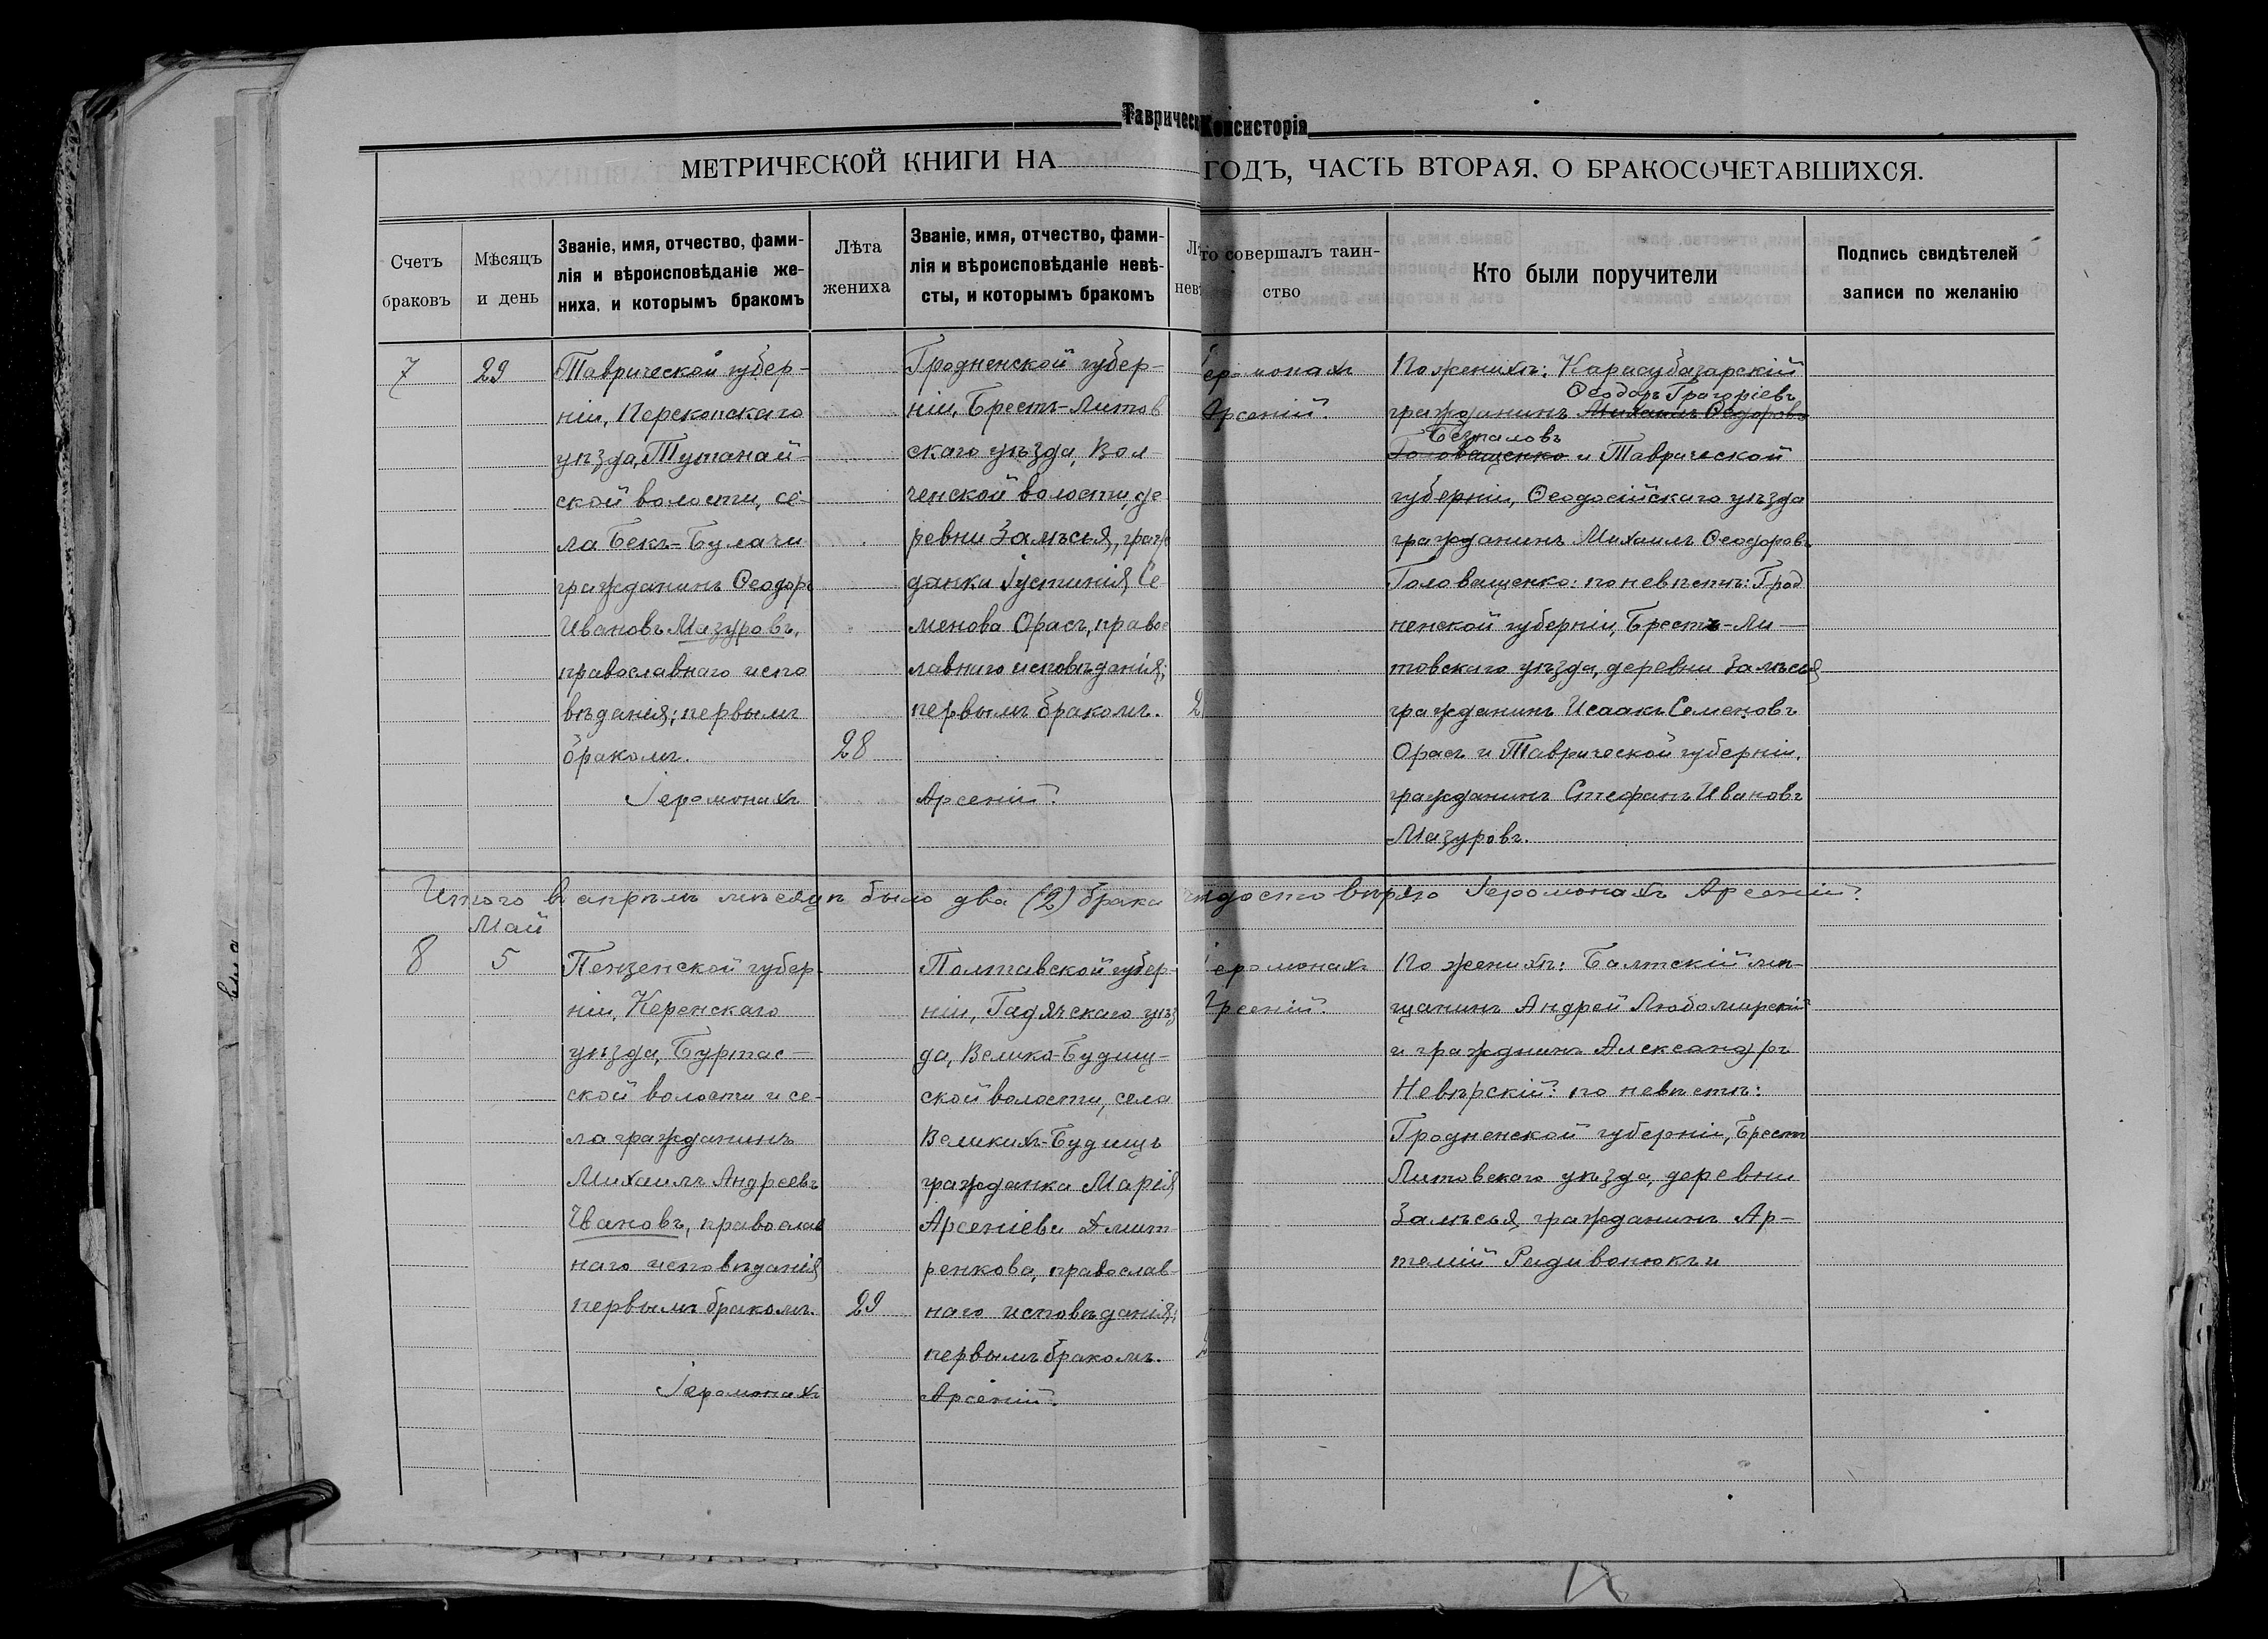 Таврическ Консисторія
МЕТРИЧЕСКОЙ КНИГИ НА ГОДЪ, ЧАСТЬ ВТОРАЯ, О БРАКОСОЧЕТАВШИХСЯ.
Счетъ
браковъ
Мѣсяцъ
и день
Званіе, имя, отчество, фами-
лія и вѣроисповѣданіе же-
ниха, и которымъ бракомъ
Лѣта
жениха
Званіе, имя, отчество, фами-
лія и вѣроисповѣданіе невѣ-
сты, и которымъ бракомъ
Лѣ
невѣ
то совершалъ таин-
ство
Кто были поручители
Подпись свидѣтелей
записи по желанію
7
29
Таврической губер-
ніи, Перекопскаго
уѣзда, Тутанай-
ской волости, се-
ла Бекъ-Булачи
гражданинъ Ѳеодоръ
Ивановъ Мазуровъ,
православнаго испо
вѣданія; первымъ
бракомъ.
28
Іеромонахъ
Гродненской губер-
ніи, Брестъ-Литов
скаго уѣзда, Вол-
ченской волости, де
ревни Залѣсья, граж
данка Іустинія Се-
менова Орасъ, правос
лавнаго исповѣданія;
первымъ бракомъ.
2
Арсеній.
еромонахъ
Арсеній.
По женихѣ: Карасубазарскій
Ѳеодоръ Григоріевъ
гражданинъ Михаилъ Ѳеодоровъ
Безпаловъ
Головащенко и Таврической
губерніи, Ѳеодосійскаго уѣзда
гражданинъ Михаилъ Ѳеодоровъ
Головащенко: по невѣстѣ: Грод
ненской губерніи, Брестъ-Ли-
товскаго уѣзда, деревни Залѣсья
гражданинъ Исаакъ Семеновъ
Орасъ и Таврической губерніи,
гражданинъ Стефанъ Ивановъ
Мазуровъ.
Итого въ апрѣлѣ мѣсяцѣ было два (2) брака удостовѣряю Іеромонахъ Арсеній.
Май
8
5
Пензенской губер-
ніи, Керенскаго
уѣзда, Буртас-
ской волости и се-
ла гражданинъ
Михаилъ Андреевъ
Ивановъ, православ
наго исповѣданія
первымъ бракомъ.
29
Іеромонахъ
Полтавской губер-
ніи, Гадячскаго уѣз
да, Велико-Будищ-
ской волости, села
Великихъ-Будищъ
гражданка Марія
Арсеніева
ренкова, православ-
наго исповѣданія;
первымъ бракомъ.
2
Арсеній.
еромонахъ
Арсеній.
По женихѣ: Балтскій мѣ-
щанинъ Андрей Любомирскій
и граждпинъ Александръ
Невѣрскій: по невѣстѣ:
Гродненской губерніи, Брест
Литовскаго уѣзда, деревни
Залѣсья, гражданинъ Ар-
темій Радивонюкъ и